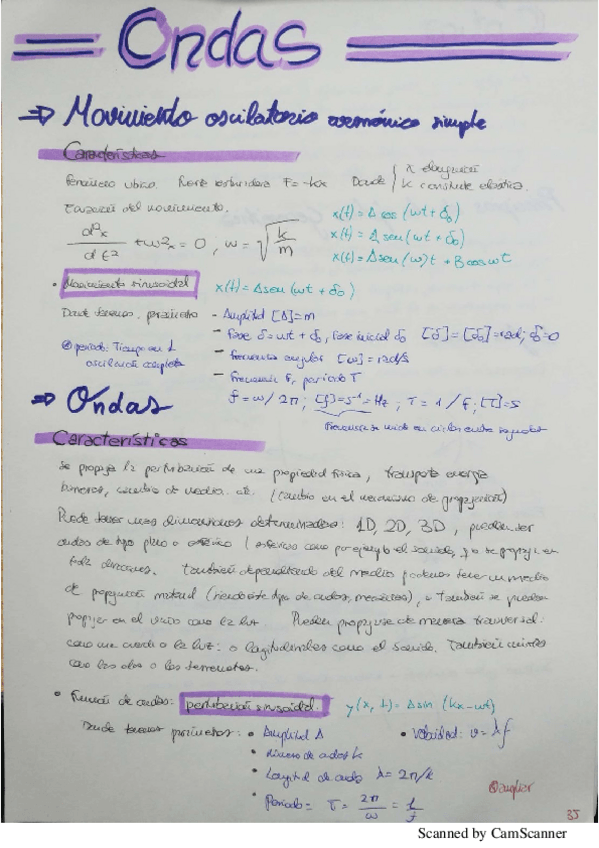 Ondas
⇒ Movimiento oscilatorio armónico simple
Características
Fenómeno ubico. Fuerza F = -kx Donde { x elongación
k constante elástica.
Ecuación del movimiento.
x(t) = A cos (wt + δ₀)
x(t) = A sen (wt + δ₀)
x(t) = A sen (w)t + B cos wt
d²x/dt² + w²x = 0 , w = √(k/m)
• Movimiento sinusoidal x(t) = A sen (wt + δ₀)
Donde tenemos, parámetros - Amplitud [A] = m
- Fase δ = wt + δ₀, fase inicial δ₀ [δ] = [δ₀] = rad; δ = 0
periodo: Tiempo en 1 oscilación completa
- Frecuencia angular [w] = rad/s
- Frecuencia f, periodo T
f = w/2π ; [f] = s⁻¹ = Hz ; T = 1/f ; [T] = s
Frecuencia se mide en ciclos cada segundo
⇒ Ondas
Características
Se propaga la perturbación de una propiedad física, transporta energía
cambio de medio. etc. (cambio en el mecanismo de propagación)
Puede tener unas dimensiones determinadas: 1D, 2D, 3D, pueden ser
ondas de tipo plano o esférico (esféricas como por ejemplo el sonido, que se propaga en
direcciones. También dependiendo del medio podemos tener un medio
de propagación material (siendo este tipo de ondas, mecánicas), o también se pueden
propagar en el vacío como la luz Pueden propagarse de manera transversal:
como una cuerda o la luz: o longitudinales como el sonido. También mixtas
como las olas o los terremotos.
• Función de ondas: perturbación sinusoidal. y(x, t) = A sin (kx - wt)
Donde tenemos parámetros: • Amplitud A • Velocidad: v = λf
• Número de ondas k
• Longitud de onda λ = 2π/k
• Periodo = T = 2π/w = 1/f
35
Scanned by CamScanner